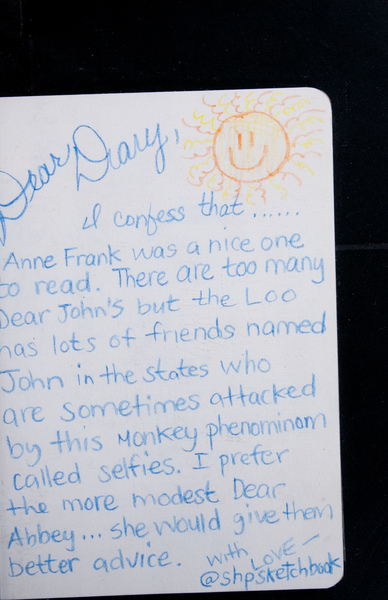 Dear Diary,
I confess that......
Anne Frank was a nice one
to read. There are too many
Dear John's but the Loo
has lots of friends named
John in the states who
are sometimes attacked
by this Monkey phenominom
called selfies. I prefer
the more modest Dear
Abbey... she would give them
better advice. with LOVE -
@shpsketchbook